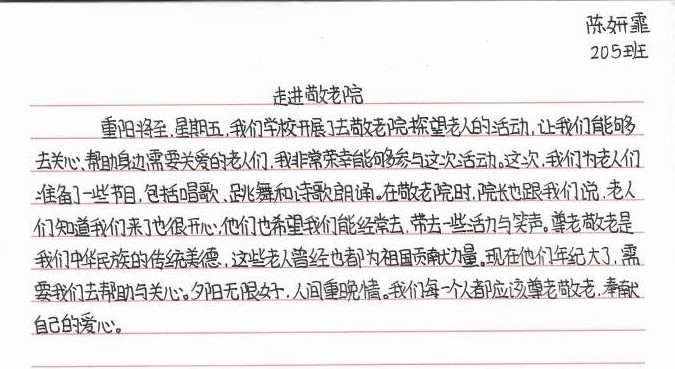 陈妍霏
205班
走进敬老院
重阳将至,星期五,我们学校开展了去敬老院探望老人的活动,让我们能够
去关心,帮助身边需要关爱的老人们,我非常荣幸能够参与这次活动。这次,我们为老人们
准备了一些节目,包括唱歌、跳舞和诗歌朗诵。在敬老院时,院长也跟我们说,老人
们知道我们来了也很开心,他们也希望我们能经常去,带去一些活力与笑声。尊老敬老是
我们中华民族的传统美德,这些老人曾经也都为祖国贡献力量。现在他们年纪大了,需
要我们去帮助与关心。夕阳无限好,人间重晚情。我们每一个人都应该尊老敬老,奉献
自己的爱心。